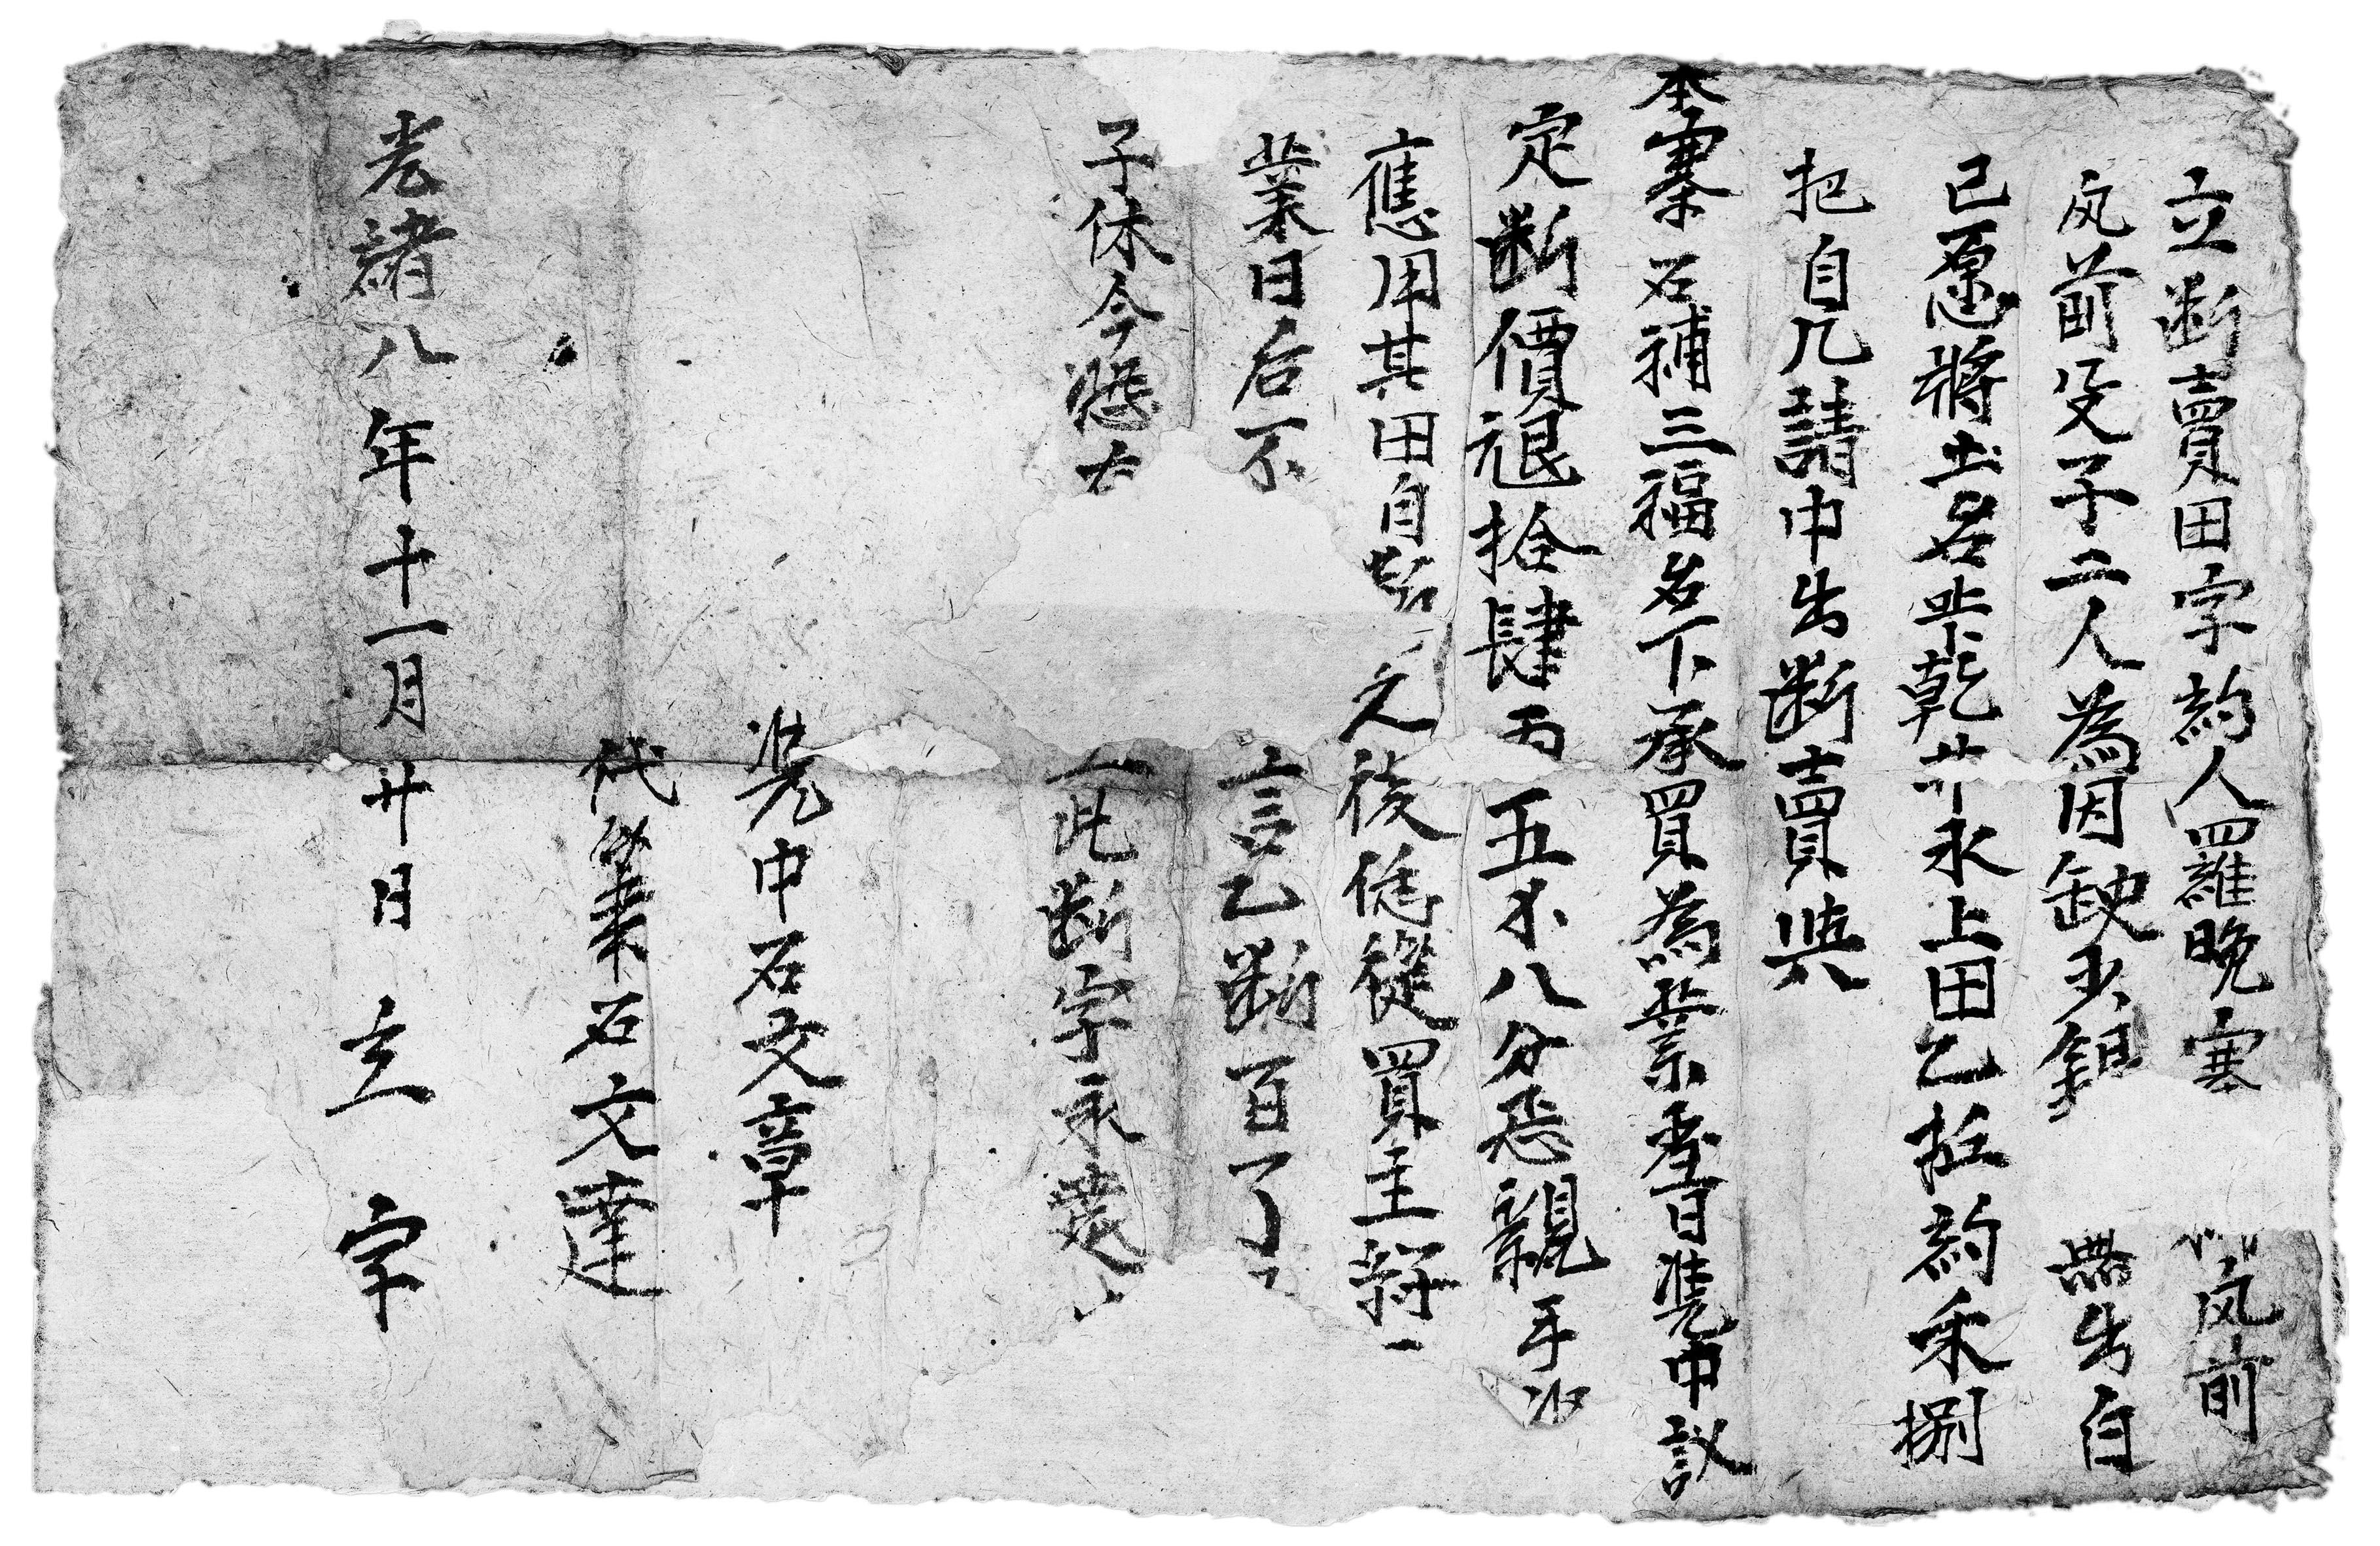 立断賣田字約人羅晚寨 凤前
凤前受子二人為因缺少銀 無出自
己愿將土名毕乾廾永上田乙坵約禾捌
把自几請中出断賣與
本寨石補三福名下承買為業當日憑中議
定断價銀拾肆両五不八分恁親手
應用其田自 之後任從買主耕
業日后不 言乙断百了
子休今恐 此断字永遠
凭中石文章
代筆石文達
光緒八年十一月廿日 立 字